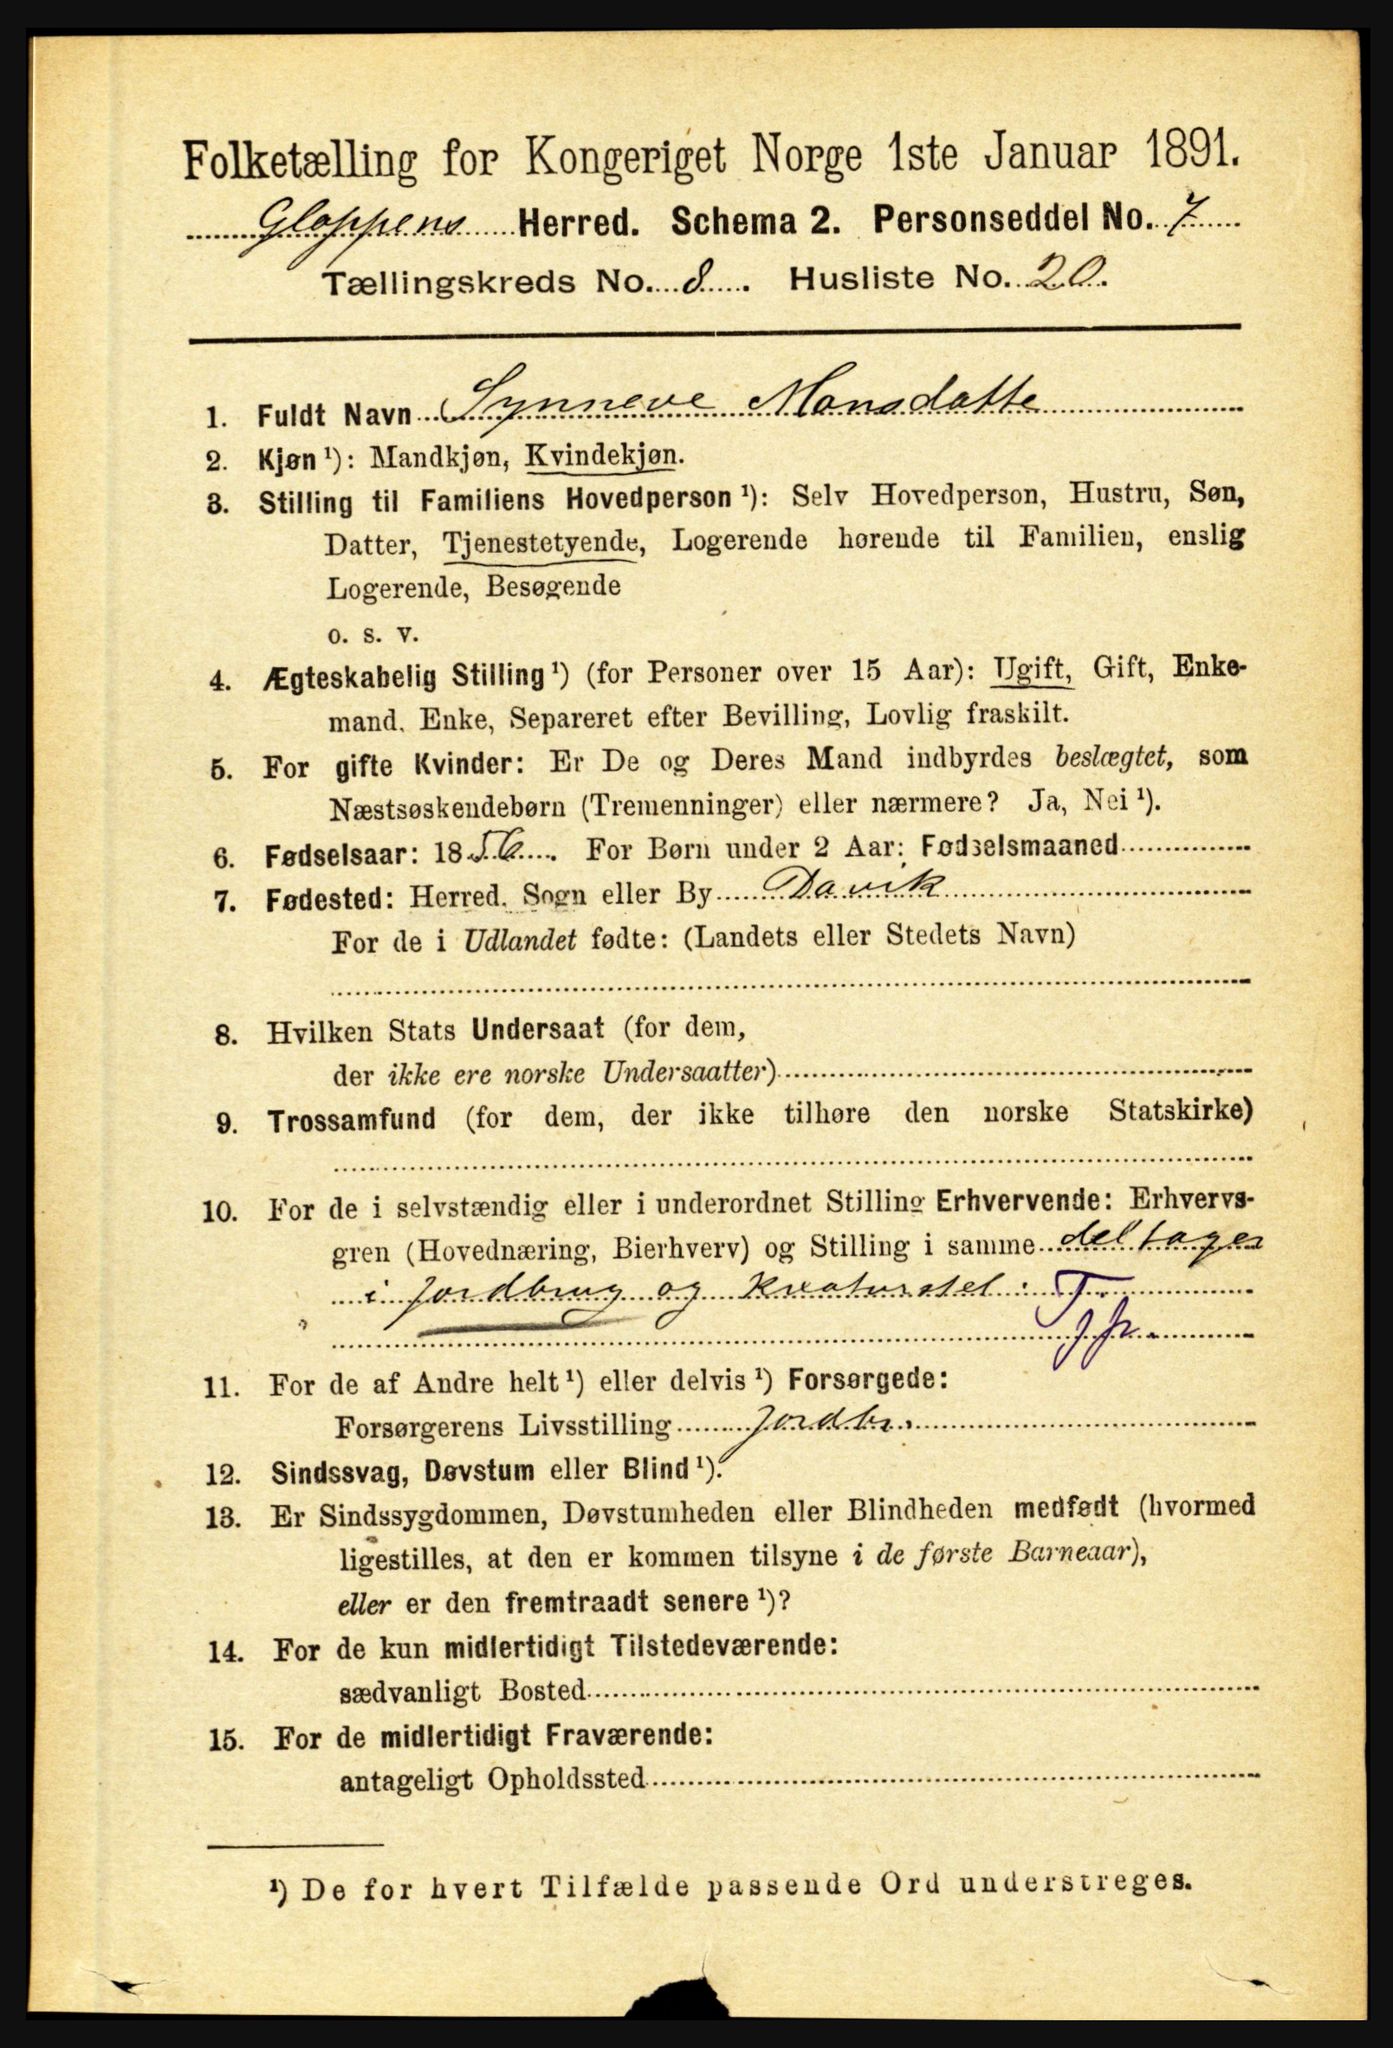 Folketælling for Kongeriget Norge 1ste Januar 1891.
Gloppens Herred. Schema 2. Personseddel No. 7
Tællingskreds No. 8. Husliste No. 20.
1. Fuldt Navn Synneve Monsdatte
2. Kjøn ¹): Mandkjøn, Kvindekjøn.
3. Stilling til Familiens Hovedperson ¹): Selv Hovedperson, Hustru, Søn,
Datter, Tjenestetyende, Logerende hørende til Familien, enslig
Logerende, Besøgende
o. s. v.
4. Ægteskabelig Stilling ¹) (for Personer over 15 Aar): Ugift, Gift, Enke-
mand, Enke, Separeret efter Bevilling, Lovlig fraskilt.
5. For gifte Kvinder: Er De og Deres Mand indbyrdes beslægtet, som
Næstsøskendebørn (Tremenninger) eller nærmere? Ja, Nei ¹).
6. Fødselsaar: 1856. For Børn under 2 Aar: Fødselsmaaned
7. Fødested: Herred, Sogn eller By Davik
For de i Udlandet fødte: (Landets eller Stedets Navn)
8. Hvilken Stats Undersaat (for dem,
der ikke ere norske Undersaatter)
9. Trossamfund (for dem, der ikke tilhøre den norske Statskirke)
10. For de i selvstændig eller i underordnet Stilling Erhvervende: Erhvervs-
gren (Hovednæring, Bierhverv) og Stilling i samme deltager
i Jordbrug og Kreaturstel : T.
11. For de af Andre helt ¹) eller delvis ¹) Forsørgede:
Forsørgerens Livsstilling Jordbr.
12. Sindssvag, Døvstum eller Blind ¹).
13. Er Sindssygdommen, Døvstumheden eller Blindheden medfødt (hvormed
ligestilles, at den er kommen tilsyne i de første Barneaar),
eller er den fremtraadt senere ¹)?
14. For de kun midlertidigt Tilstedeværende:
sædvanligt Bosted
15. For de midlertidigt Fraværende:
antageligt Opholdssted
¹) De for hvert Tilfælde passende Ord understreges.